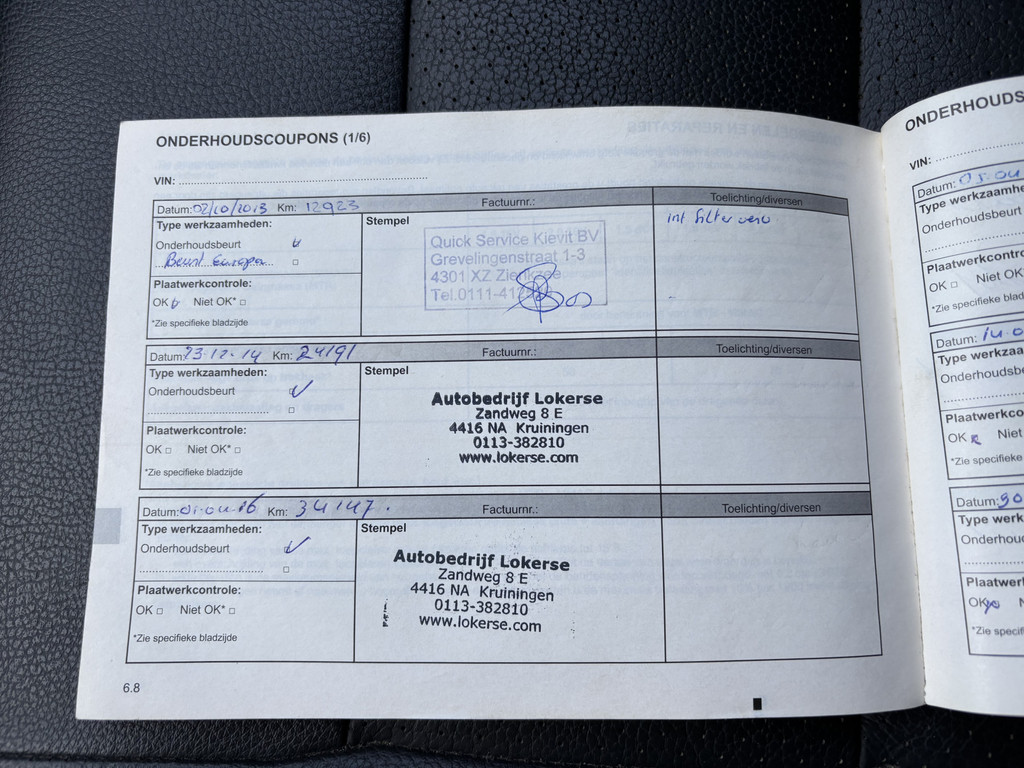 ONDERHOUDSCOUPONS (1/6)
VIN:
Datum: 02/10/2013 Km: 12923 Factuurnr.: Toelichting/diversen
Type werkzaamheden:
Onderhoudsbeurt
Beurt Europa
Plaatwerkcontrole:
OK Niet OK*
*Zie specifieke bladzijde
Stempel
Quick Service Kievit BV
Grevelingenstraat 1-3
4301 XZ Zierikzee
Tel.0111-41
int filter verv
Datum: 23-12-14 Km: 24191 Factuurnr.: Toelichting/diversen
Type werkzaamheden:
Onderhoudsbeurt
Plaatwerkcontrole:
OK Niet OK*
*Zie specifieke bladzijde
Stempel
Autobedrijf Lokerse
Zandweg 8 E
4416 NA Kruiningen
0113-382810
www.lokerse.com
Datum: 01-04-16 Km: 34147. Factuurnr.: Toelichting/diversen
Type werkzaamheden:
Onderhoudsbeurt
Plaatwerkcontrole:
OK Niet OK*
*Zie specifieke bladzijde
Stempel
Autobedrijf Lokerse
Zandweg 8 E
4416 NA Kruiningen
0113-382810
www.lokerse.com
6.8
ONDERHOUDS
VIN:
Datum: 05.04
Type werkzaamhe
Onderhoudsbeurt
Plaatwerkcontrol
OK Niet OK
*Zie specifieke blad
Datum: 14.0
Type werkzaa
Onderhoudsbe
Plaatwerkco
OK Niet
*Zie specifieke
Datum:
Type werk
Onderhou
Plaatwer
OK N
*Zie speci